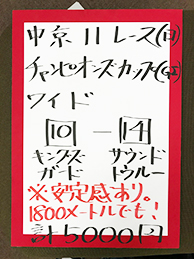 中京11レース(日)
チャンピオンズカップ(GI)
ワイド
10 — 14
キングズ サウンド
ガード トゥルー
※安定感あり。
1800メートルでも!
計5000円